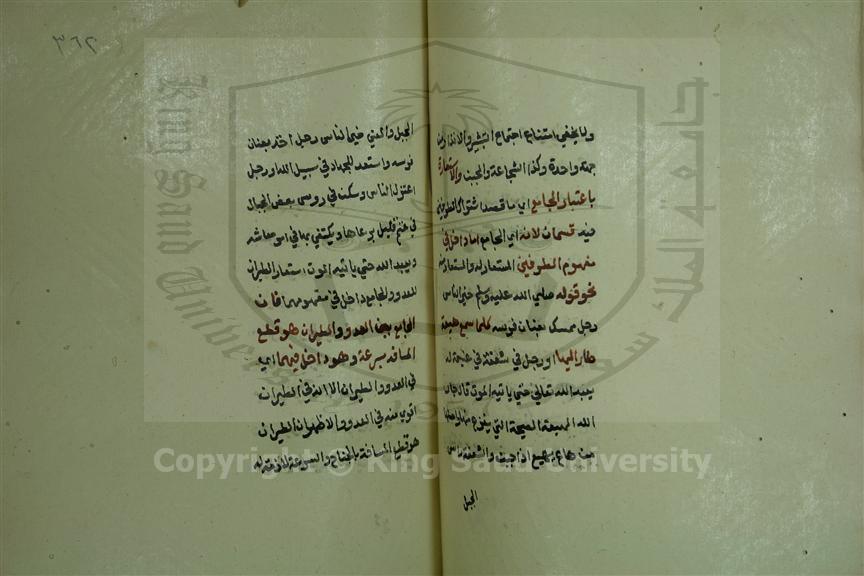 ولا يخفي امتناع اجتماع التبشير والانذار من
جهة واحدة وكذا الشجاعة والجبن والاستعارة
باعتبار الجامع اي ما قصد اشتراك الطرفين
فيه قسمان لانه اي الجامع اما داخل في
مفهوم الطرفين المستعار له والمستعار منه
نحو قوله صلي الله عليه وسلم خير الناس
رجل ممسك بعنان فرسه كلما سمع هيعة
طار اليها او رجل في شعفة في غنيمة له
يعبد الله تعالي حتي ياتيه الموت قال جار
الله الهيعة الصيحة التي يفزع منها واصلها
من هاع يهيع اذا جبن والشعفة راس
الجبل
الجبل والمعني خير الناس رجل اخذ بعنان
فرسه واستعد للجهاد في سبيل الله او رجل
اعتزل الناس وسكن في روس بعض الجبال
في غنم قليل يرعاها ويكتفي بها في امر معاشه
ويعبد الله حتي ياتيه الموت استعار الطيران
للعدو والجامع داخل في مفهومهما فان
الجامع بين العدو والطيران هو قطع
المسافة بسرعة وهو داخل فيهما اي
في العدو والطيران الا انه في الطيران
اقوي منه في العدو والاظهر ان الطيران
هو قطع المسافة بالجناح والسرعة لازمة له
٣٦٢
King Saud University
جامعة الملك سعود
1957
Copyright © King Saud University